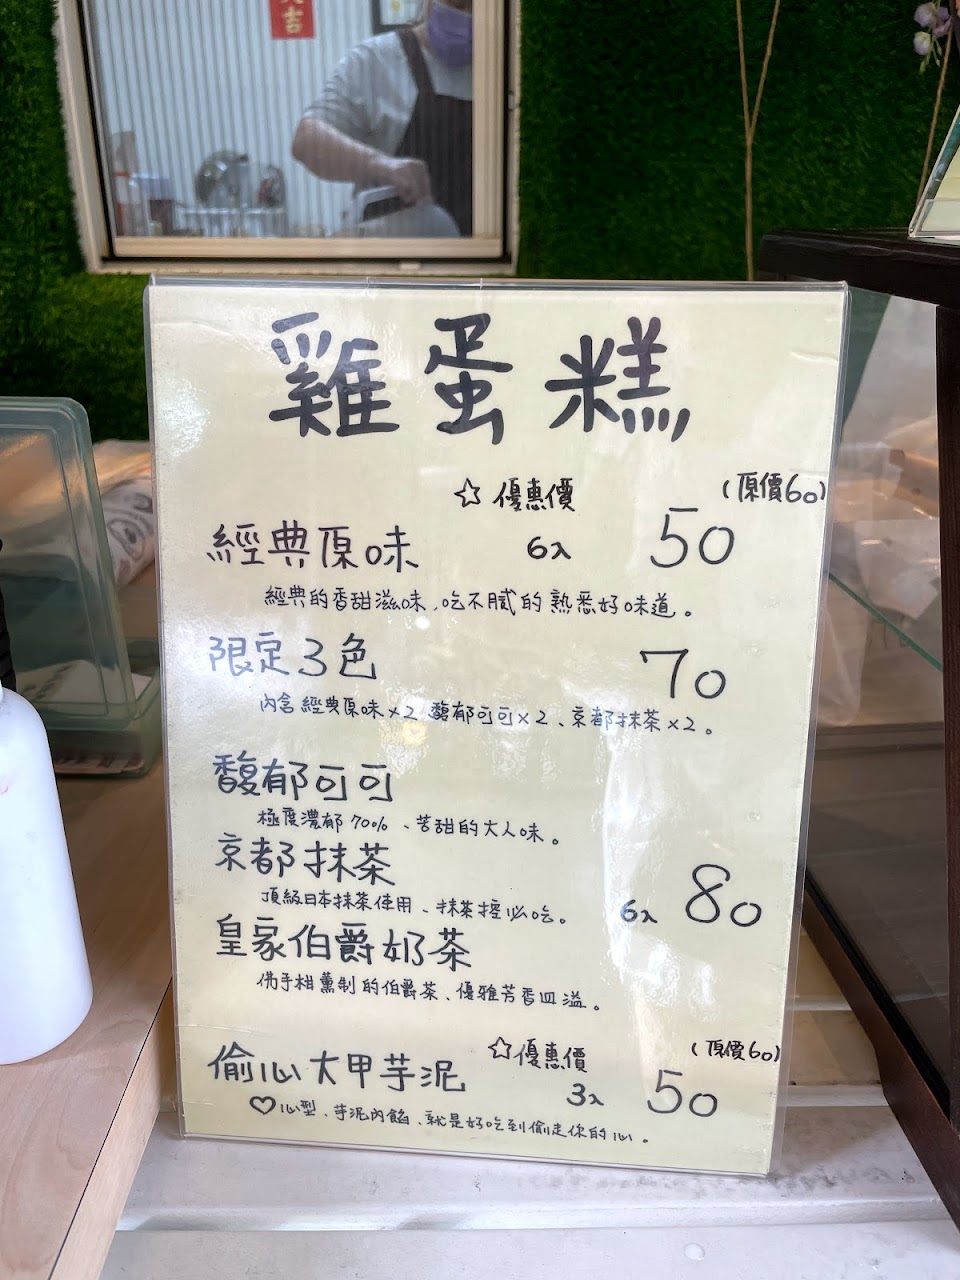 吉
雞蛋糕
☆優惠價 (原價60)
經典原味 6入 50
經典的香甜滋味,吃不膩的熟悉好味道。
限定3色 70
內含經典原味x2 馥郁可可x2、京都抹茶x2。
馥郁可可
極度濃郁70%、苦甜的大人味。
京都抹茶
頂級日本抹茶使用、抹茶控必吃。 6入 80
皇家伯爵奶茶
佛手柑薰制的伯爵茶、優雅芳香四溢。
偷心大甲芋泥 ☆優惠價 3入 50 (原價60)
♡心型、芋泥內餡、就是好吃到偷走你的心。